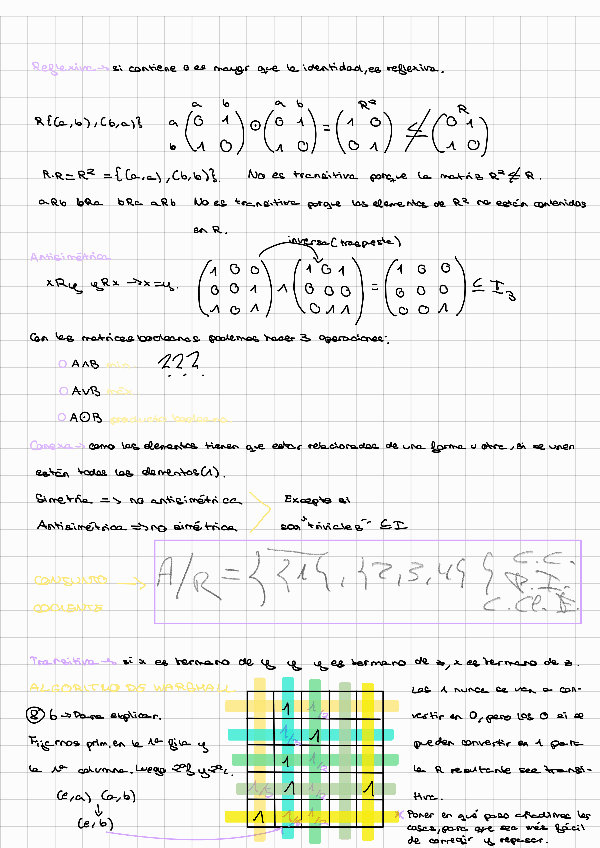 Reflexiva → si contiene o es mayor que la identidad, es reflexiva.
a b a b R² R
R{(a,b),(b,a)} a (0 1) ⊙ (0 1) = (1 0) ≰ (0 1)
b (1 0) (1 0) (0 1) (1 0)
R·R = R² = {(a,a),(b,b)}. No es transitiva porque la matriz R² ≰ R.
aRb bRa bRa aRb No es transitiva porque los elementos de R² no están contenidos
en R.
inversa (traspuesta)
Antisimétrica
xRy yRx → x=y. (1 0 0) (1 0 1) (1 0 0)
(0 0 1) ∧ (0 0 0) = (0 0 0) ⊆ I₃
(1 0 1) (0 1 1) (0 0 1)
Con las matrices booleanas podemos hacer 3 operaciones:
○ A∧B min ???
○ A∨B máx
○ A⊙B producto booleano
Conexa → como los elementos tienen que estar relacionados de una forma u otra, si se unen
están todos los elementos (1).
Simetría => no antisimétrica Excepto si
Antisimétrica => no simétrica son "triviales" ⊆ I
CONJUNTO → A/R = { {1}, {2,3,4} } C.C.
COCIENTE P.I.
C.Cl.E.
Transitiva → si x es hermano de y y y es hermano de z, x es hermano de z.
ALGORITMO DE WARSHALL.
⑧ b → Para explicar.
Fijarnos prim. en la 1ª fila y
la 1ª columna. Luego 2ªf y 2ªc.
(e,a) (a,b)
↓
(e,b)
1
1
1
1 1
1
Los 1 nunca se van a con-
vertir en 0, pero los 0 sí se
pueden convertir en 1 para
la R resultante sea transi-
tiva.
* Poner en qué paso añadimos las
cosas, para que sea más fácil
de corregir y repasar.